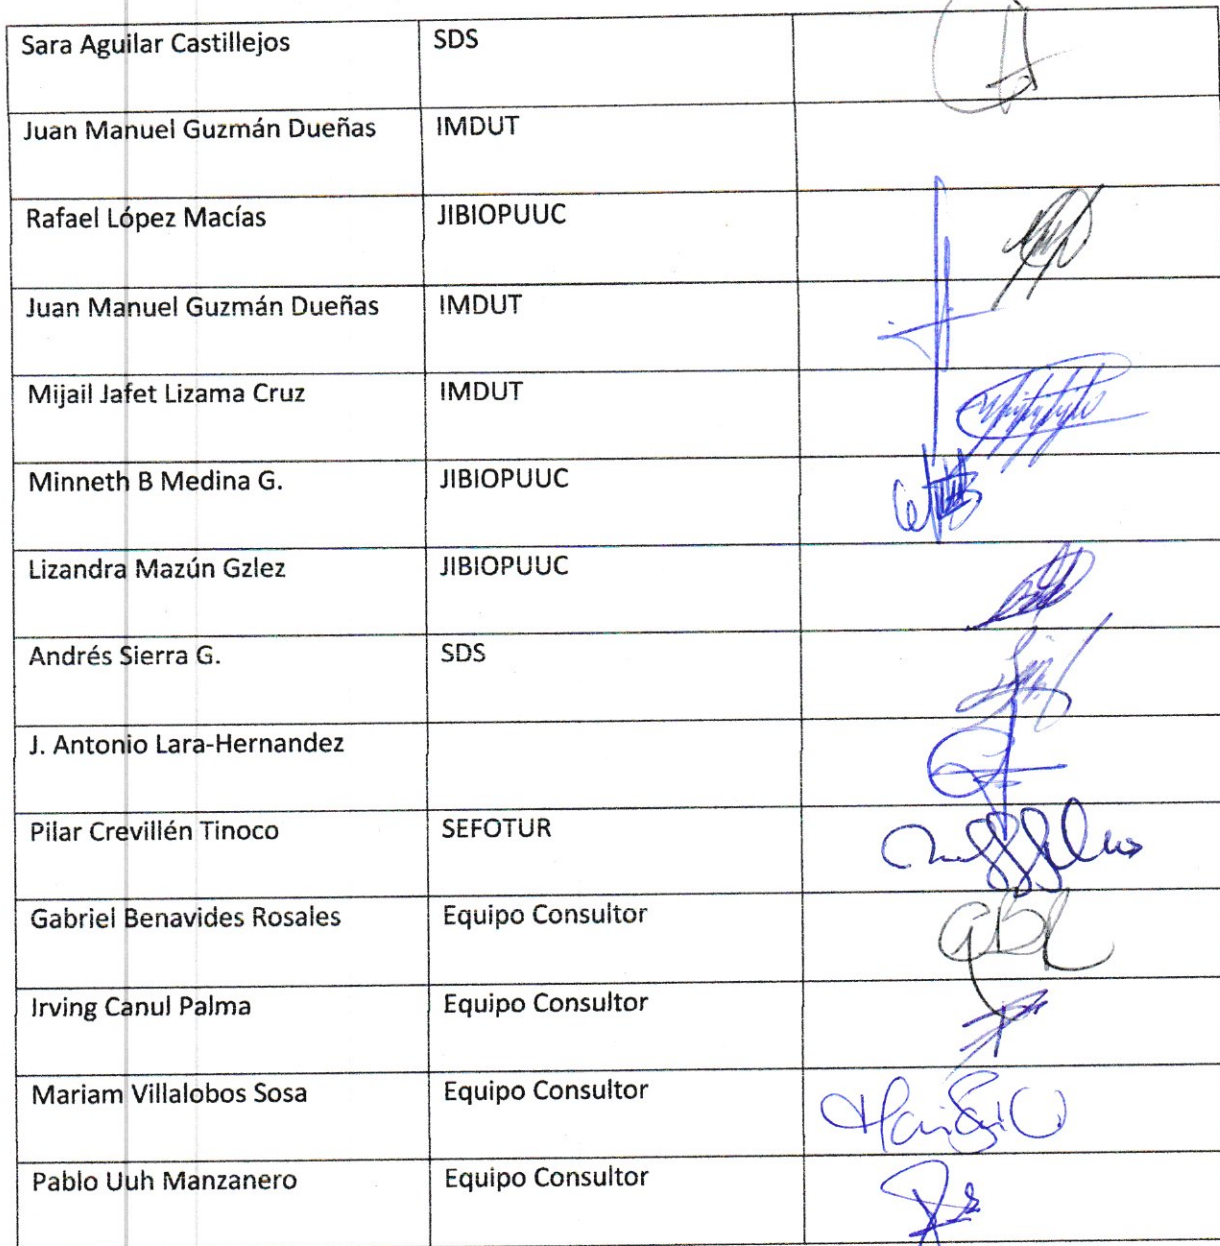 Sara Aguilar Castillejos SDS
Juan Manuel Guzmán Dueñas IMDUT
Rafael López Macías JIBIOPUUC
Juan Manuel Guzmán Dueñas IMDUT
Mijail Jafet Lizama Cruz IMDUT
Minneth B Medina G. JIBIOPUUC
Lizandra Mazún Gzlez JIBIOPUUC
Andrés Sierra G. SDS
J. Antonio Lara-Hernandez
Pilar Crevillén Tinoco SEFOTUR
Gabriel Benavides Rosales Equipo Consultor
Irving Canul Palma Equipo Consultor
Mariam Villalobos Sosa Equipo Consultor
Pablo Uuh Manzanero Equipo Consultor